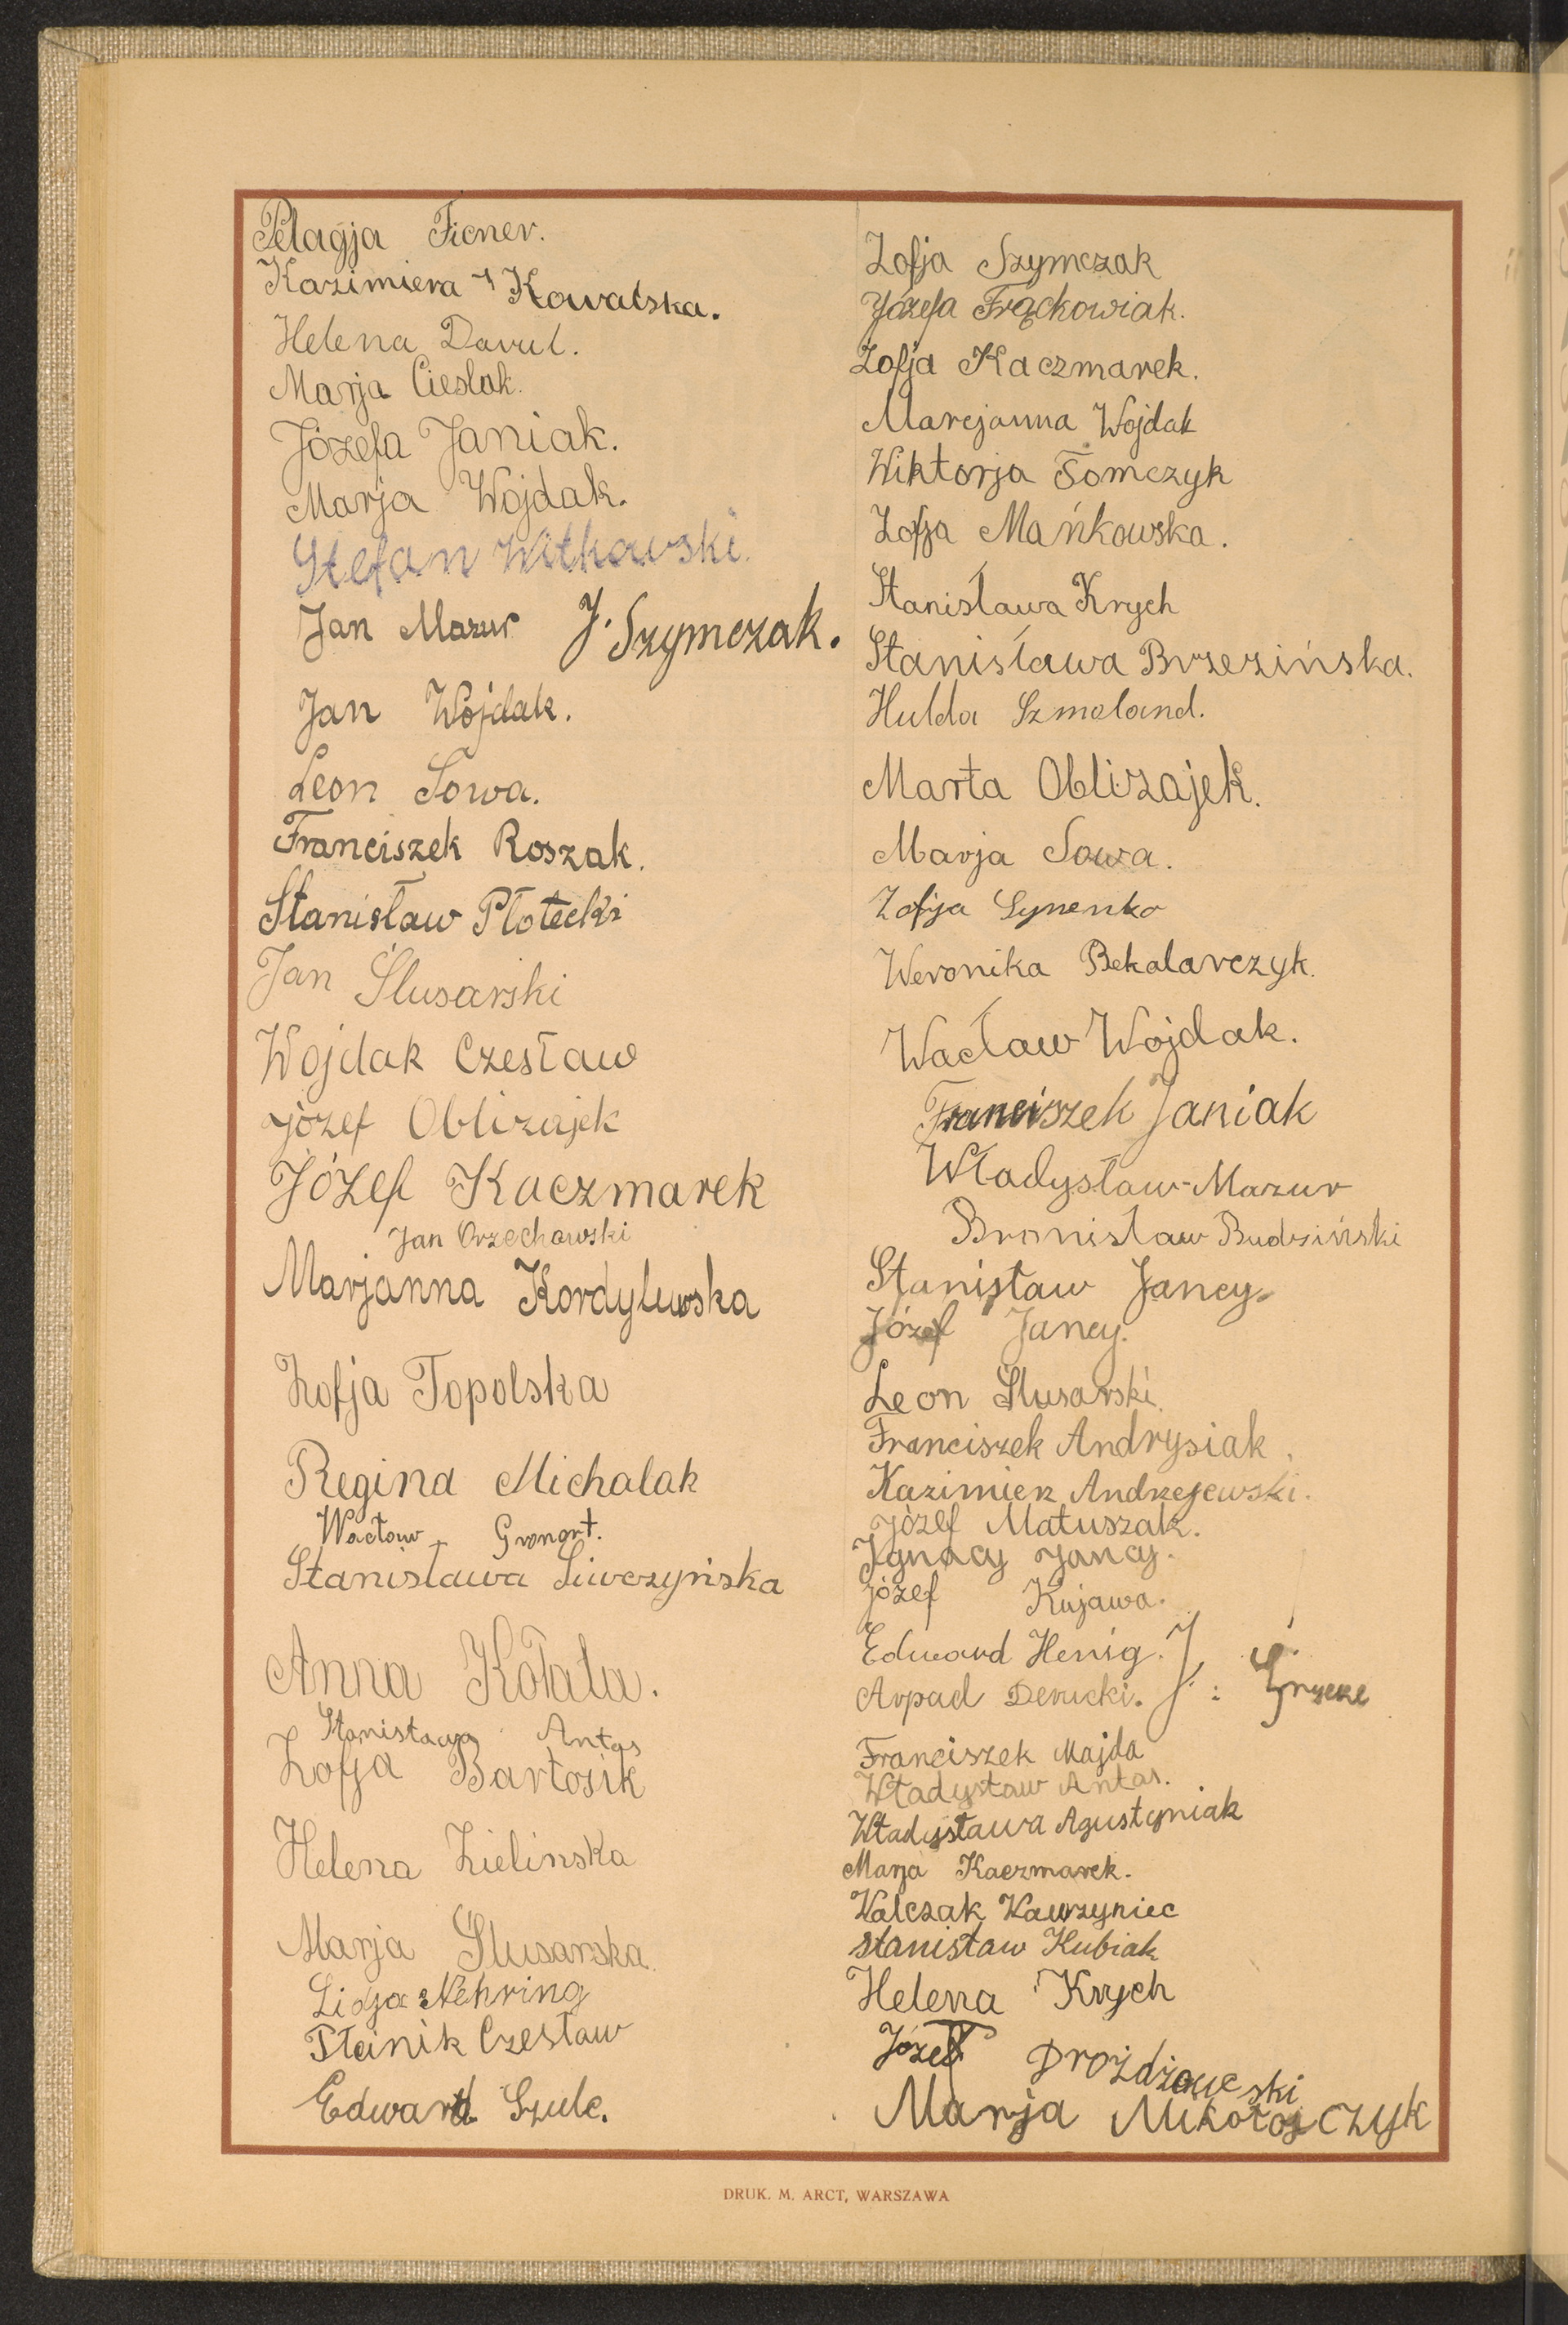 Pelagja Ficner.
Kazimiera Kowalska.
Helena Davul.
Marja Cieslak.
Józefa Janiak.
Marja Wojdak.
Stefan Witkowski.
Jan Mazur J. Szymczak.
Jan Wojdak.
Leon Sowa.
Franciszek Roszak.
Stanisław Płotecki
Jan Ślusarski
Wojdak Czesław
józef Oblizajek
Józef Kaczmarek
Jan Orzechowski
Marjanna Kordylewska
Zofja Topolska
Regina Michalak
Wacław Gronart.
Stanisława Siwczyńska
Anna Kołata.
Stanisława Antas
Zofja Bartosik
Helena Zielinska
Marja Ślusarska.
Lidja Nehring
Płeinik Czesław
Edward Szulc.
Zofja Szymczak
Józefa Frąckowiak.
Zofja Kaczmarek.
Marcjanna Wojdak
Wiktorja Tomczyk
Zofja Mańkowska.
Stanisława Krych
Stanisława Brzezińska.
Hulda Szmaland.
Marta Oblizajek.
Marja Sowa.
Zofja Synenko
Weronika Bekalarczyk.
Wacław Wojdak.
Franciszek Janiak
Władysław Mazur
Bronisław Budziński
Stanisław Jancy.
Józef Jancy.
Leon Ślusarski.
Franciszek Andrysiak.
Kazimierz Andrzejewski.
józef Matuszak.
Ignacy Jancy.
józef Kujawa.
Edward Henig.
Arpad Derucki. J.:
Franciszek Majda
Władysław Antas.
Władysława Agustyniak
Marja Kaczmarek.
Walczak Wawrzyniec
Stanisław Kubiak
Helena Krych
Józef Drożdżewski
Marja Mikołajczyk
DRUK. M. ARCT, WARSZAWA